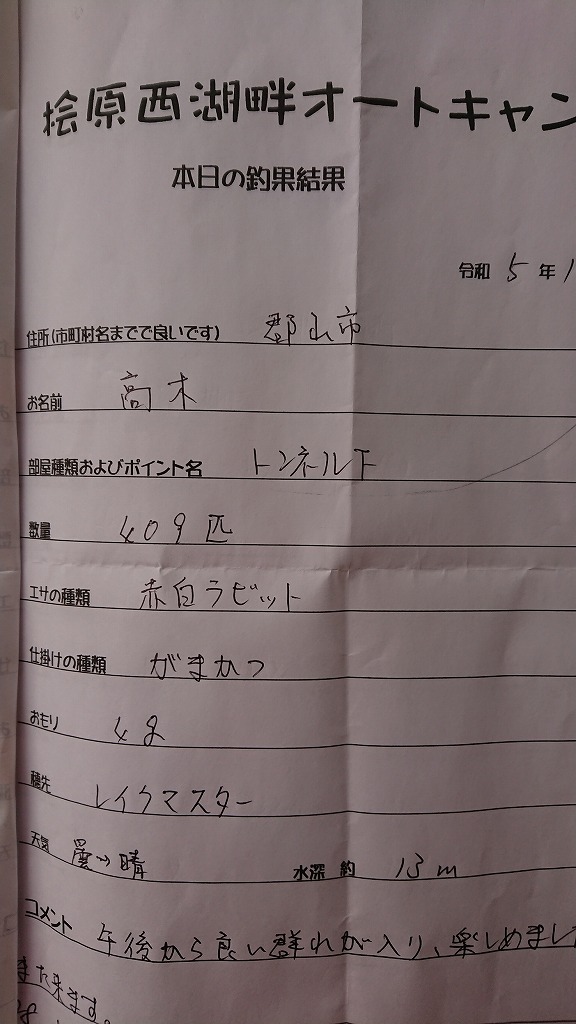 桧原西湖畔オートキャン
本日の釣果結果
令和 5 年 1
住所(市町村名までで良いです) 郡山市
お名前 高木
部屋種類およびポイント名 トンネル下
数量 409匹
エサの種類 赤白ラビット
仕掛けの種類 がまかつ
おもり 4g
穂先 レイクマスター
天気 曇→晴 水深 約 13m
コメント 午後から良い群れが入り、楽しめました
また来ます。